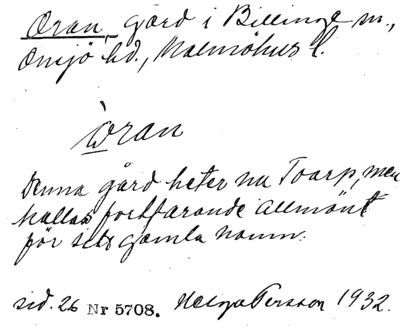 Oran, gård i Billinge sn.,
Onsjö hd., Malmöhus l.
Òran
Denna gård heter nu Toarp, men
kallas fortfarande allmänt
för sitt gamla namn.
sid. 26 Nr 5708. Helga Persson 1932.